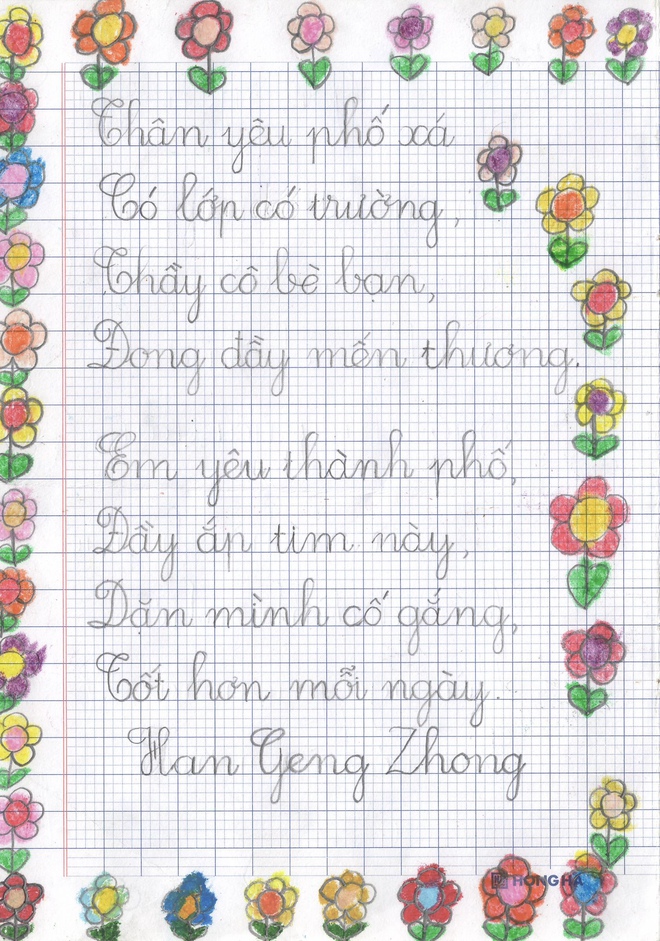 Thân yêu phố xá
Có lớp có trường,
Thầy cô bè bạn,
Đong đầy mến thương.
Em yêu thành phố,
Đầy ắp tim này,
Dặn mình cố gắng,
Tốt hơn mỗi ngày.
Han Geng Zhong
HONG HA